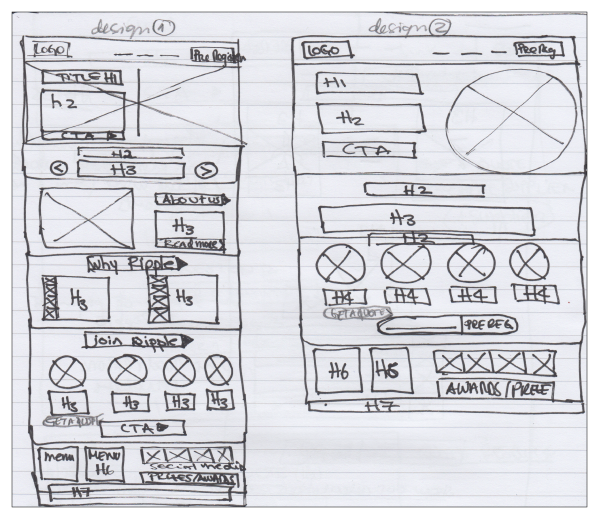 design 1
LOGO
TITLE H1
h2
CTA
H2
< H3 >
ABOUT US
H3
READ MORE
Why Ripple
H3 H3
Join Ripple
H3 H3 H3 H3
GET A QUOTE
CTA
menu MENU
H6
social media
H7
design 2
LOGO PRE Reg
H1
H2
CTA
H2
H3
H2
H4 H4 H4 H4
GET A QUOTE
PRE REG
H6 H5
AWARDS/
H7